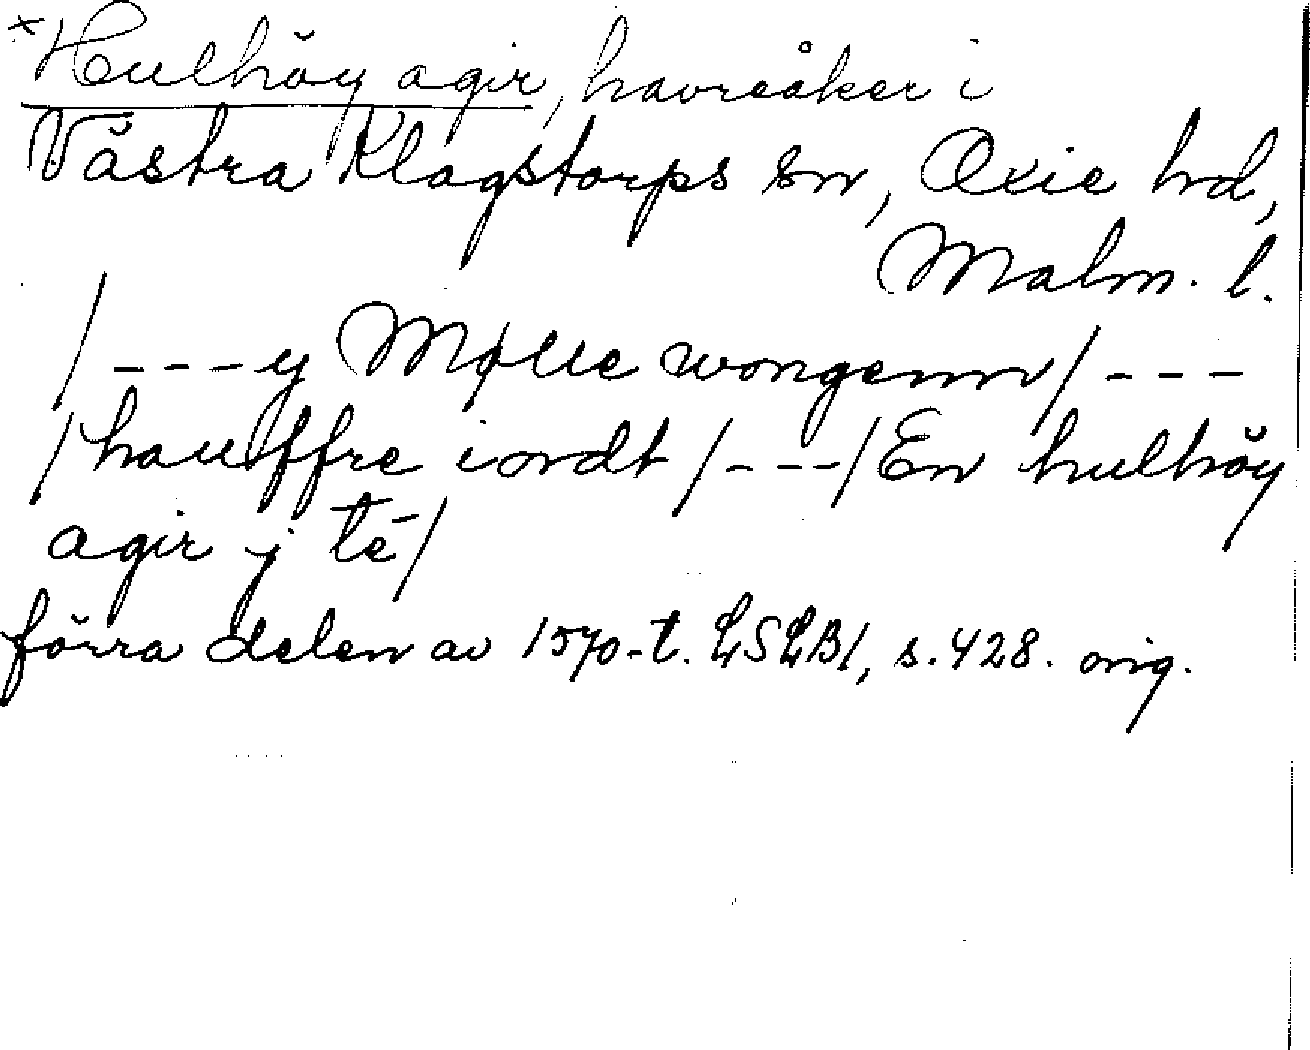 *Hulhöy agir, havreåker i
Västra Klagstorps sn, Oxie hd,
Malm. l.
/---y Mølle wongenn/---
/hauffre iordt/---/En hulhöy
agir j tē/
förra delen av 1570-t. LSLB1, s. 428. orig.